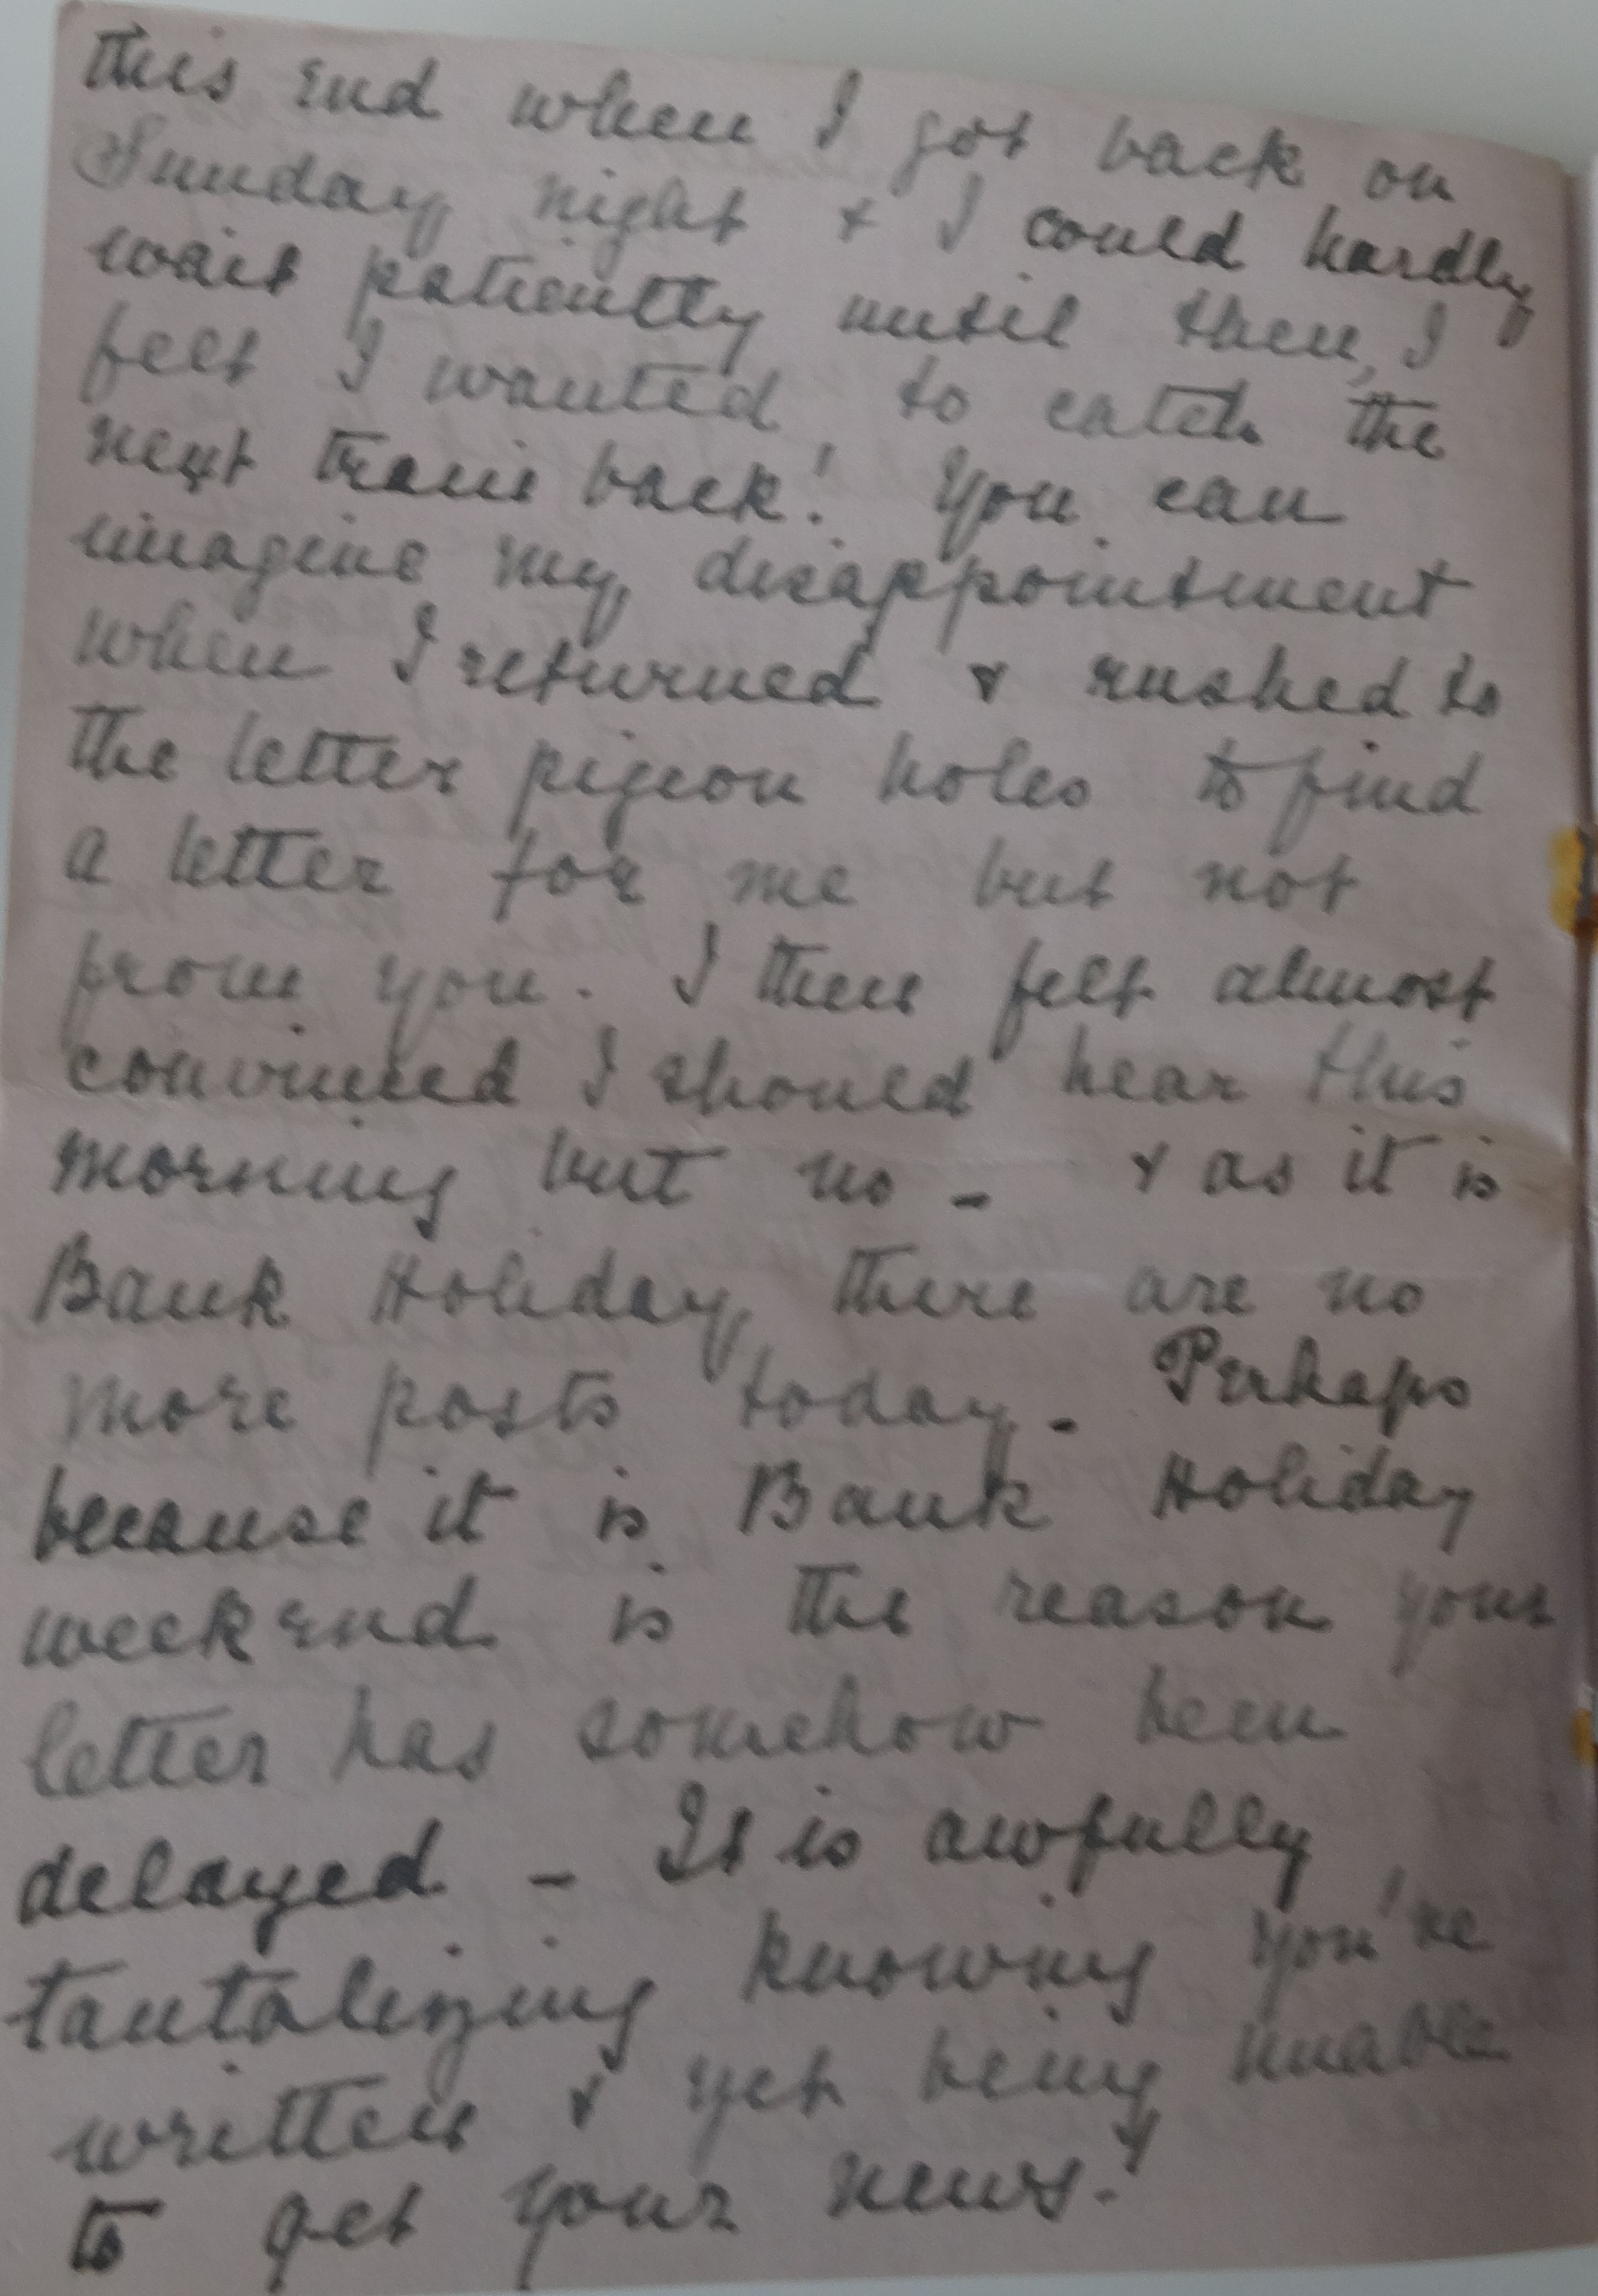 this end when I got back on
Sunday night & I could hardly
wait patiently until then, I
felt I wanted to catch the
next train back! You can
imagine my disappointment
when I returned & rushed to
the letter pigeon holes to find
a letter for me but not
from you. I then felt almost
convinced I should hear this
morning but no - & as it is
Bank Holiday there are no
more posts today - Perhaps
because it is Bank Holiday
weekend is the reason your
letter has somehow been
delayed - It is awfully
tantalizing knowing you've
written & yet being unable
to get your news!